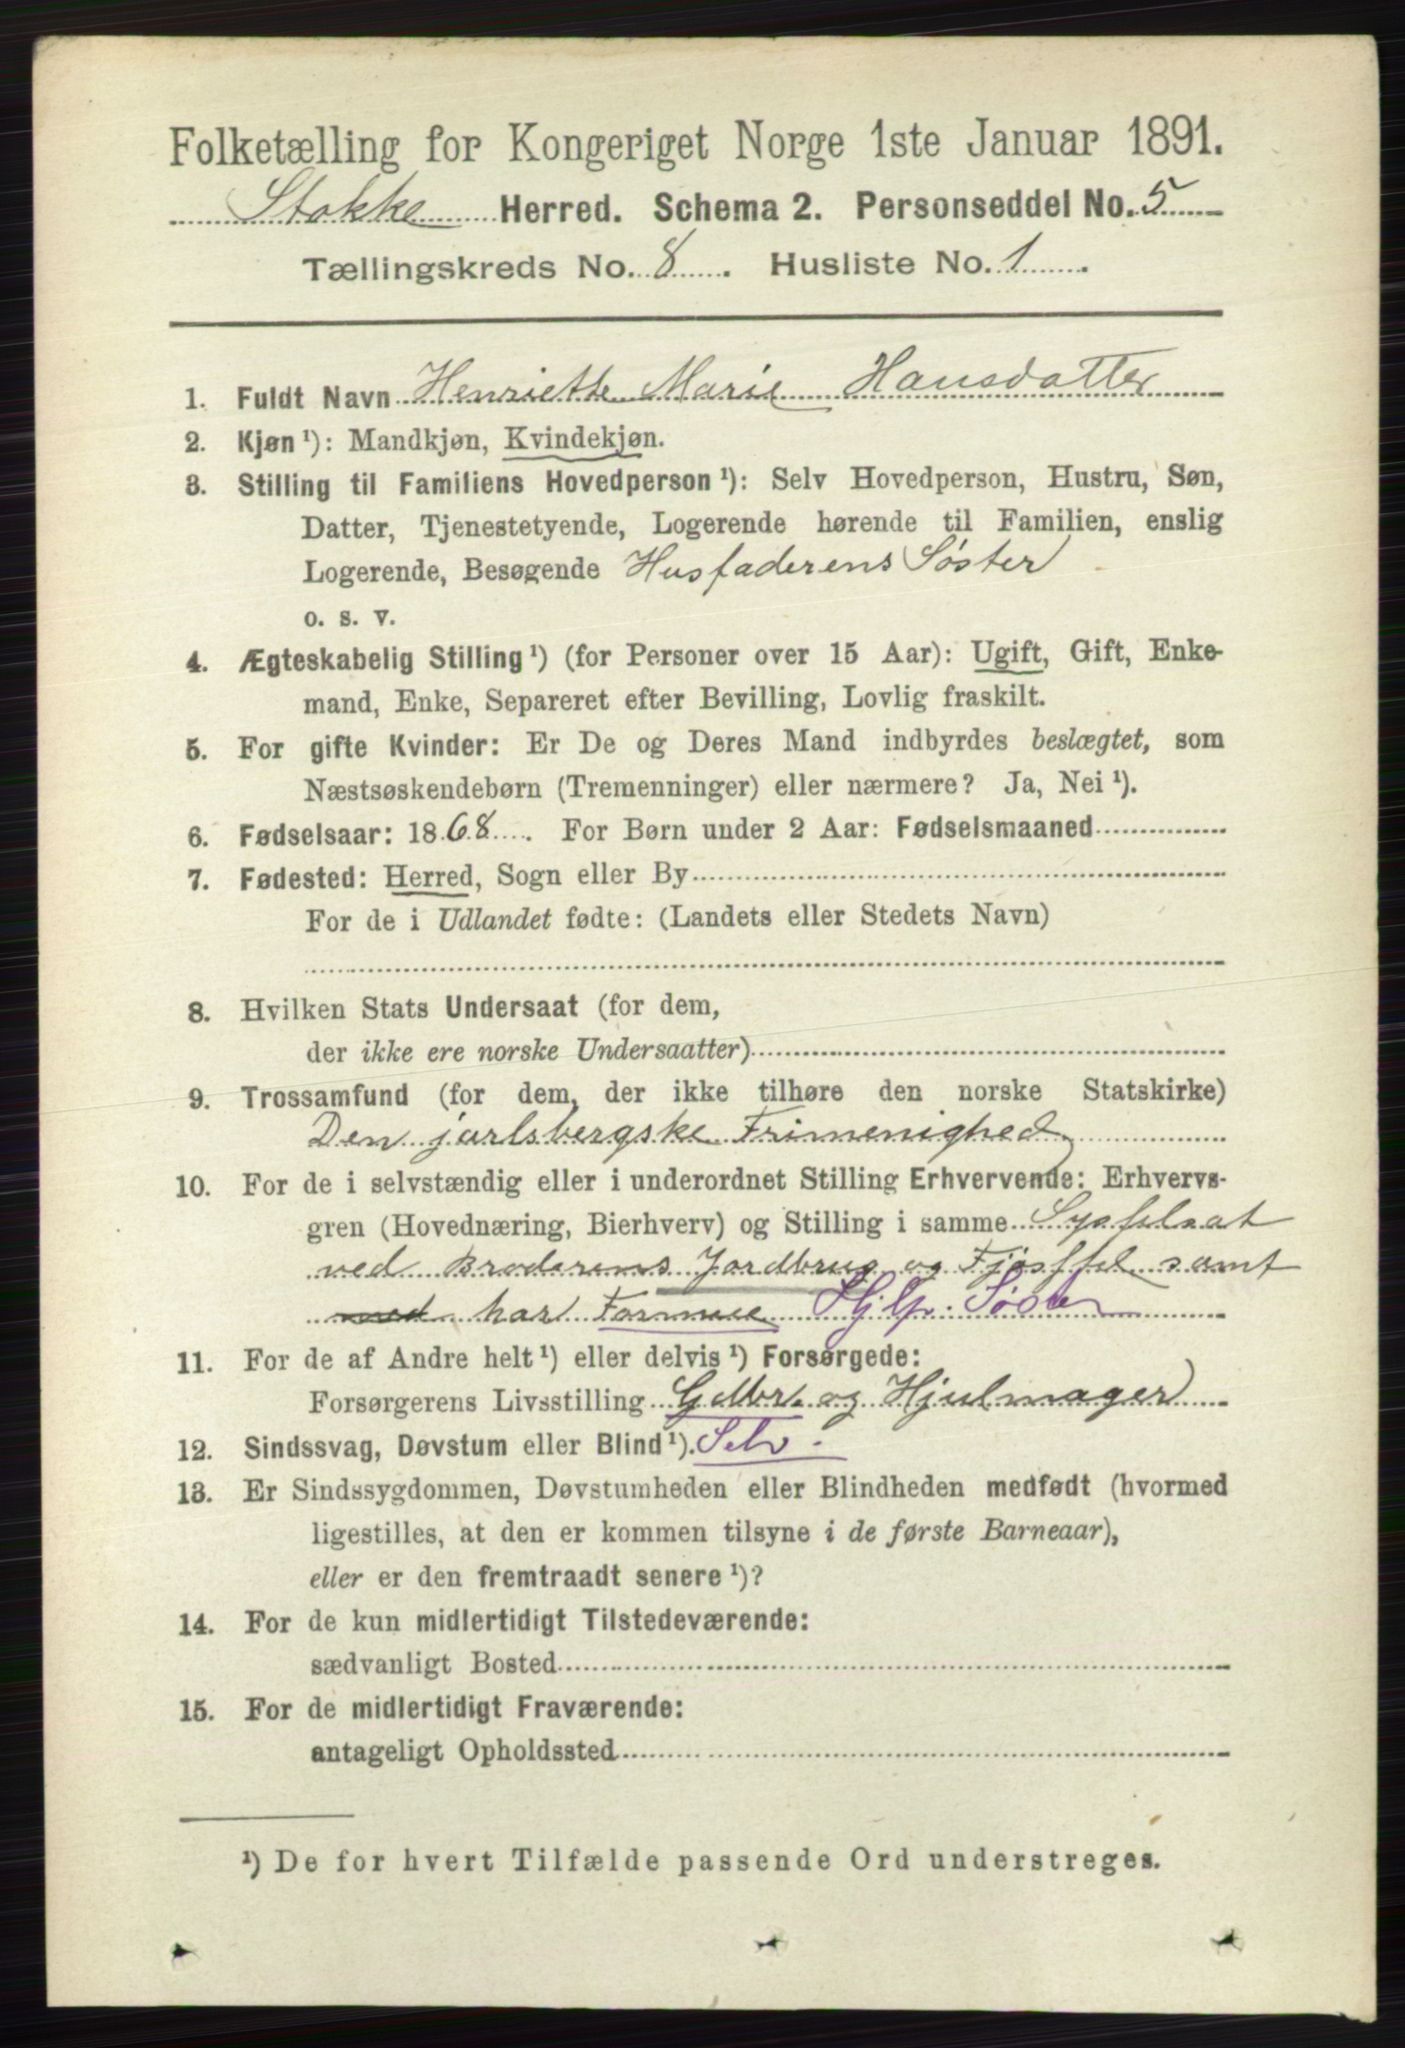 Folketælling for Kongeriget Norge 1ste Januar 1891.
Stokke Herred. Schema 2. Personseddel No. 5
Tællingskreds No. 8. Husliste No. 1
1. Fuldt Navn Henriette Marie Hansdatter
2. Kjøn ¹): Mandkjøn, Kvindekjøn.
3. Stilling til Familiens Hovedperson ¹): Selv Hovedperson, Hustru, Søn,
Datter, Tjenestetyende, Logerende hørende til Familien, enslig
Logerende, Besøgende Husfaderens Søster
o. s. v.
4. Ægteskabelig Stilling ¹) (for Personer over 15 Aar): Ugift, Gift, Enke-
mand, Enke, Separeret efter Bevilling, Lovlig fraskilt.
5. For gifte Kvinder: Er De og Deres Mand indbyrdes beslægtet, som
Næstsøskendebørn (Tremenninger) eller nærmere? Ja, Nei ¹).
6. Fødselsaar: 1868. For Børn under 2 Aar: Fødselsmaaned
7. Fødested: Herred, Sogn eller By
For de i Udlandet fødte: (Landets eller Stedets Navn)
8. Hvilken Stats Undersaat (for dem,
der ikke ere norske Undersaatter)
9. Trossamfund (for dem, der ikke tilhøre den norske Statskirke)
Den jarlsbergske Frimenighed
10. For de i selvstændig eller i underordnet Stilling Erhvervende: Erhvervs-
gren (Hovednæring, Bierhverv) og Stilling i samme Sysselsat
ved Broderens Jordbrug og Fjøsstel samt
med har Formue Hjlp. Søster
11. For de af Andre helt ¹) eller delvis ¹) Forsørgede:
Forsørgerens Livsstilling Gdbr. og Hjulmager
12. Sindssvag, Døvstum eller Blind ¹). Selv.
13. Er Sindssygdommen, Døvstumheden eller Blindheden medfødt (hvormed
ligestilles, at den er kommen tilsyne i de første Barneaar),
eller er den fremtraadt senere ¹)?
14. For de kun midlertidigt Tilstedeværende:
sædvanligt Bosted
15. For de midlertidigt Fraværende:
antageligt Opholdssted
¹) De for hvert Tilfælde passende Ord understreges.